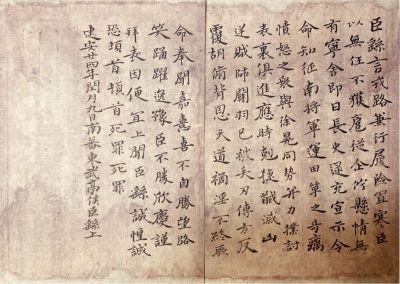 臣繇言戎路兼行履險冒寒臣
以無任不獲扈從企佇懸情無
有寧舍即日長史逯充宣示令
命知征南將軍運田單之奇厲
憤怒之眾與徐晃同勢并力撲討
表裏俱進應時剋捷馘滅凶
逆賊帥關羽已被矢刃傅方反
覆胡脩背恩天道禍淫不終厥
命奉聞嘉憙喜不自勝望路
笑踊躍逸豫臣不勝欣慶謹
拜表因便宜上聞臣繇誠惶誠
恐頓首頓首死罪死罪
建安廿四年閏月九日南蕃東武亭侯臣繇上